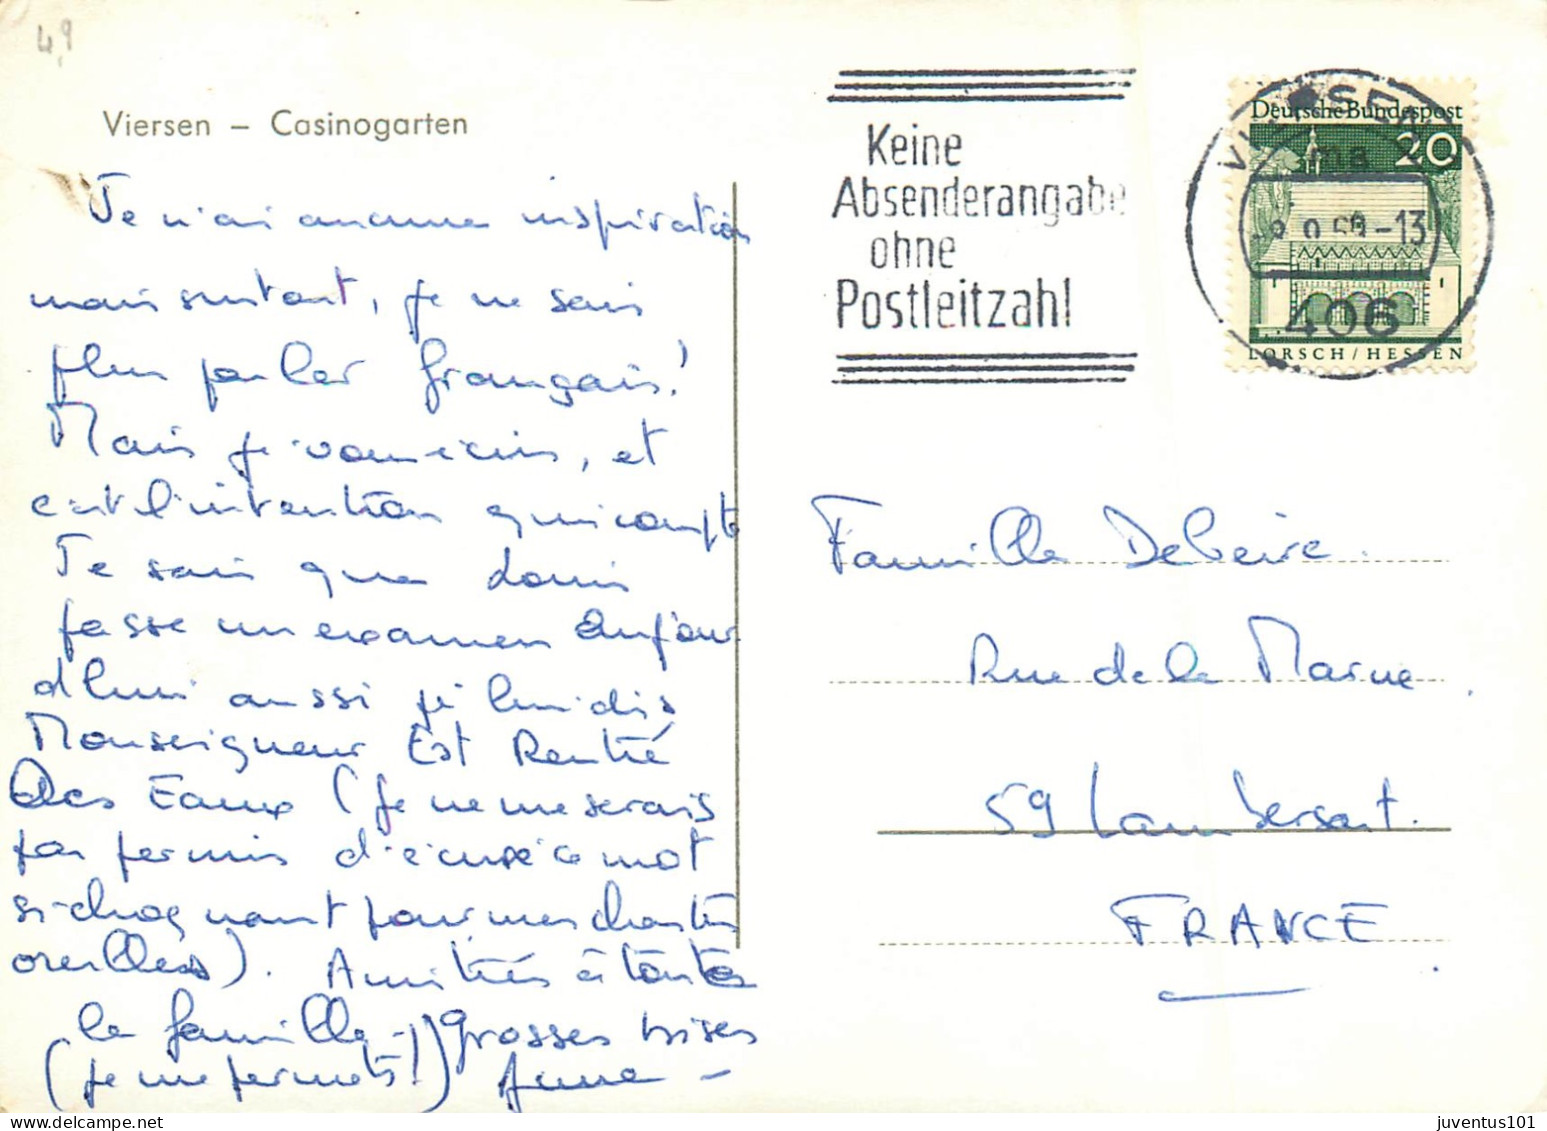 4,9
Viersen – Casinogarten
Je n'ai aucune inspiration
mais surtout, je ne sais
plus parler français!
Mais je vous écris, et
c'est l'intention qui compte
Je sais que Louis
passe un examen aujour
d'hui aussi je lui dis
Monseigneur Est Rentré
Des Eaux (je ne me serais
pas permis d'écrire ce mot
si choquant pour mes chastes
oreilles). Amitiés à toute
la famille - Grosses bises
(je me permets!) Anne -
Keine
Absenderangabe
ohne
Postleitzahl
VIERSEN
ma
-13
406
Deutsche Bundespost
20
LORSCH/HESSEN
Famille Debeire
Rue de la Marne
59 Lambersart.
FRANCE
juventus101